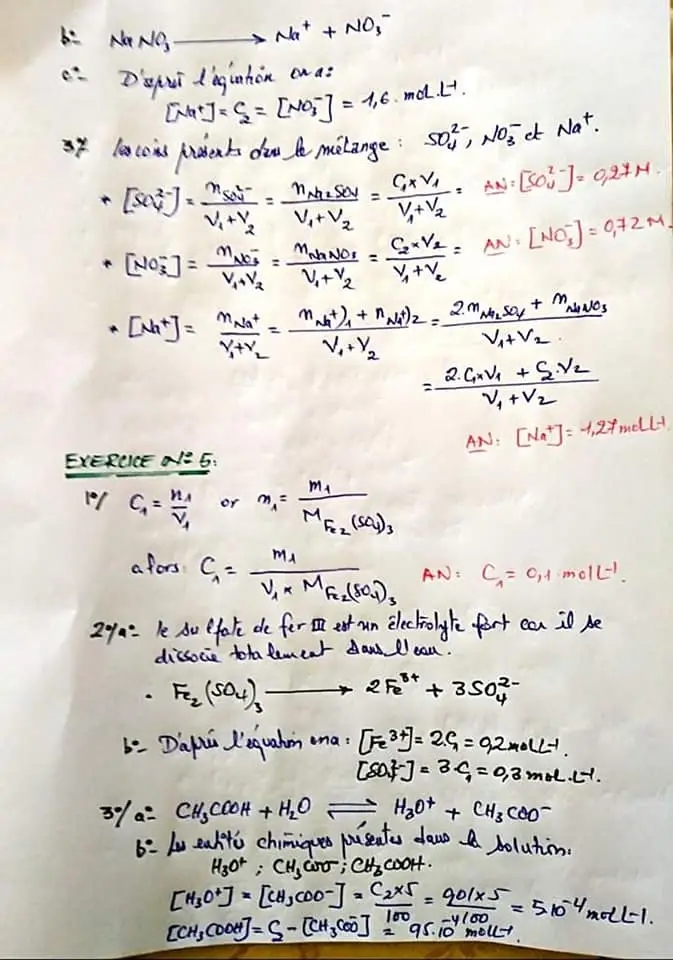 b°- NaNO₃ ⟶ Na⁺ + NO₃⁻
c°- D'après l'équation on a:
[Na⁺] = C₂ = [NO₃⁻] = 1,6 mol.L-1.
3°/ les ions présents dans le mélange : SO₄²⁻, NO₃⁻ et Na⁺.
* [SO₄²⁻] = n SO₄²⁻ / V₁+V₂ = n Na₂SO₄ / V₁+V₂ = C₁×V₁ / V₁+V₂ = AN: [SO₄²⁻] = 0,27 M.
* [NO₃⁻] = n NO₃⁻ / V₁+V₂ = n NaNO₃ / V₁+V₂ = C₂×V₂ / V₁+V₂ = AN: [NO₃⁻] = 0,72 M.
* [Na⁺] = n Na⁺ / V₁+V₂ = n Na⁺)₁ + n Na⁺)₂ / V₁+V₂ = 2.n Na₂SO₄ + n NaNO₃ / V₁+V₂
= 2.C₁×V₁ + C₂.V₂ / V₁+V₂
AN: [Na⁺] = 1,27 mol L-1.
EXERCICE N° 5:
1°/ C₁ = n₁ / V₁ or n₁ = m₁ / M Fe₂(SO₄)₃
alors: C₁ = m₁ / V₁ × M Fe₂(SO₄)₃ AN: C₁ = 0,1 mol L-1.
2°/a°- le sulfate de fer III est un électrolyte fort car il se
dissocie totalement dans l'eau.
. Fe₂(SO₄)₃ ⟶ 2Fe³⁺ + 3SO₄²⁻
b°- D'après l'équation on a : [Fe³⁺] = 2.C₁ = 0,2 mol L-1.
[SO₄²⁻] = 3.C₁ = 0,3 mol.L-1.
3°/a°- CH₃COOH + H₂O ⇌ H₃O⁺ + CH₃COO⁻
b°- Les entités chimiques présentes dans la solution:
H₃O⁺ ; CH₃COO⁻ ; CH₃COOH.
[H₃O⁺] = [CH₃COO⁻] = C₂×5 / 100 = 0,01×5 / 100 = 5.10⁻⁴ mol L-1.
[CH₃COOH] = C₂ - [CH₃COO⁻] = 95.10⁻⁴ mol L-1.